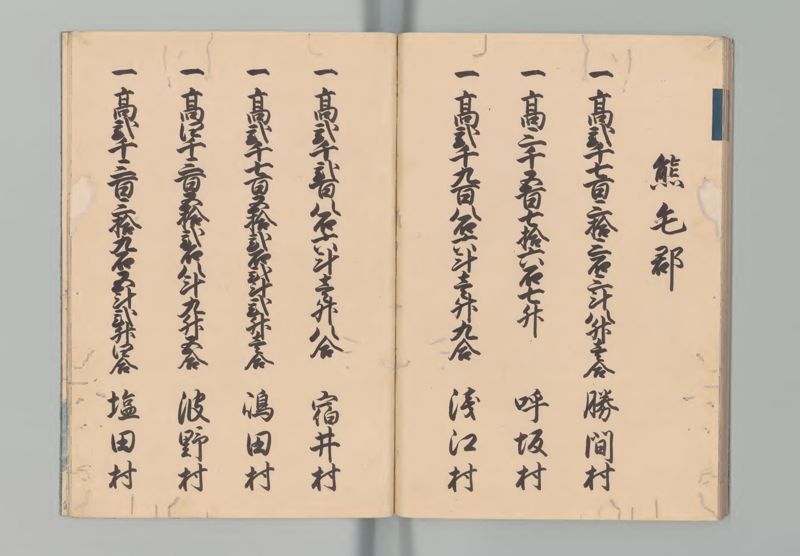 熊毛郡
一 高弐千七百三拾三石六斗八升壱合 勝間村
一 高三千五百七拾六石七升 呼坂村
一 高弐千九百八石六斗壱升九合 浅江村
一 高弐千弐百八石六斗壱升八合 宿井村
一 高弐千七百五拾弐石弐斗弐升壱合 嶋田村
一 高四千三百五拾弐石八斗九升五合 波野村
一 高弐千三百三拾九石五斗弐升四合 塩田村